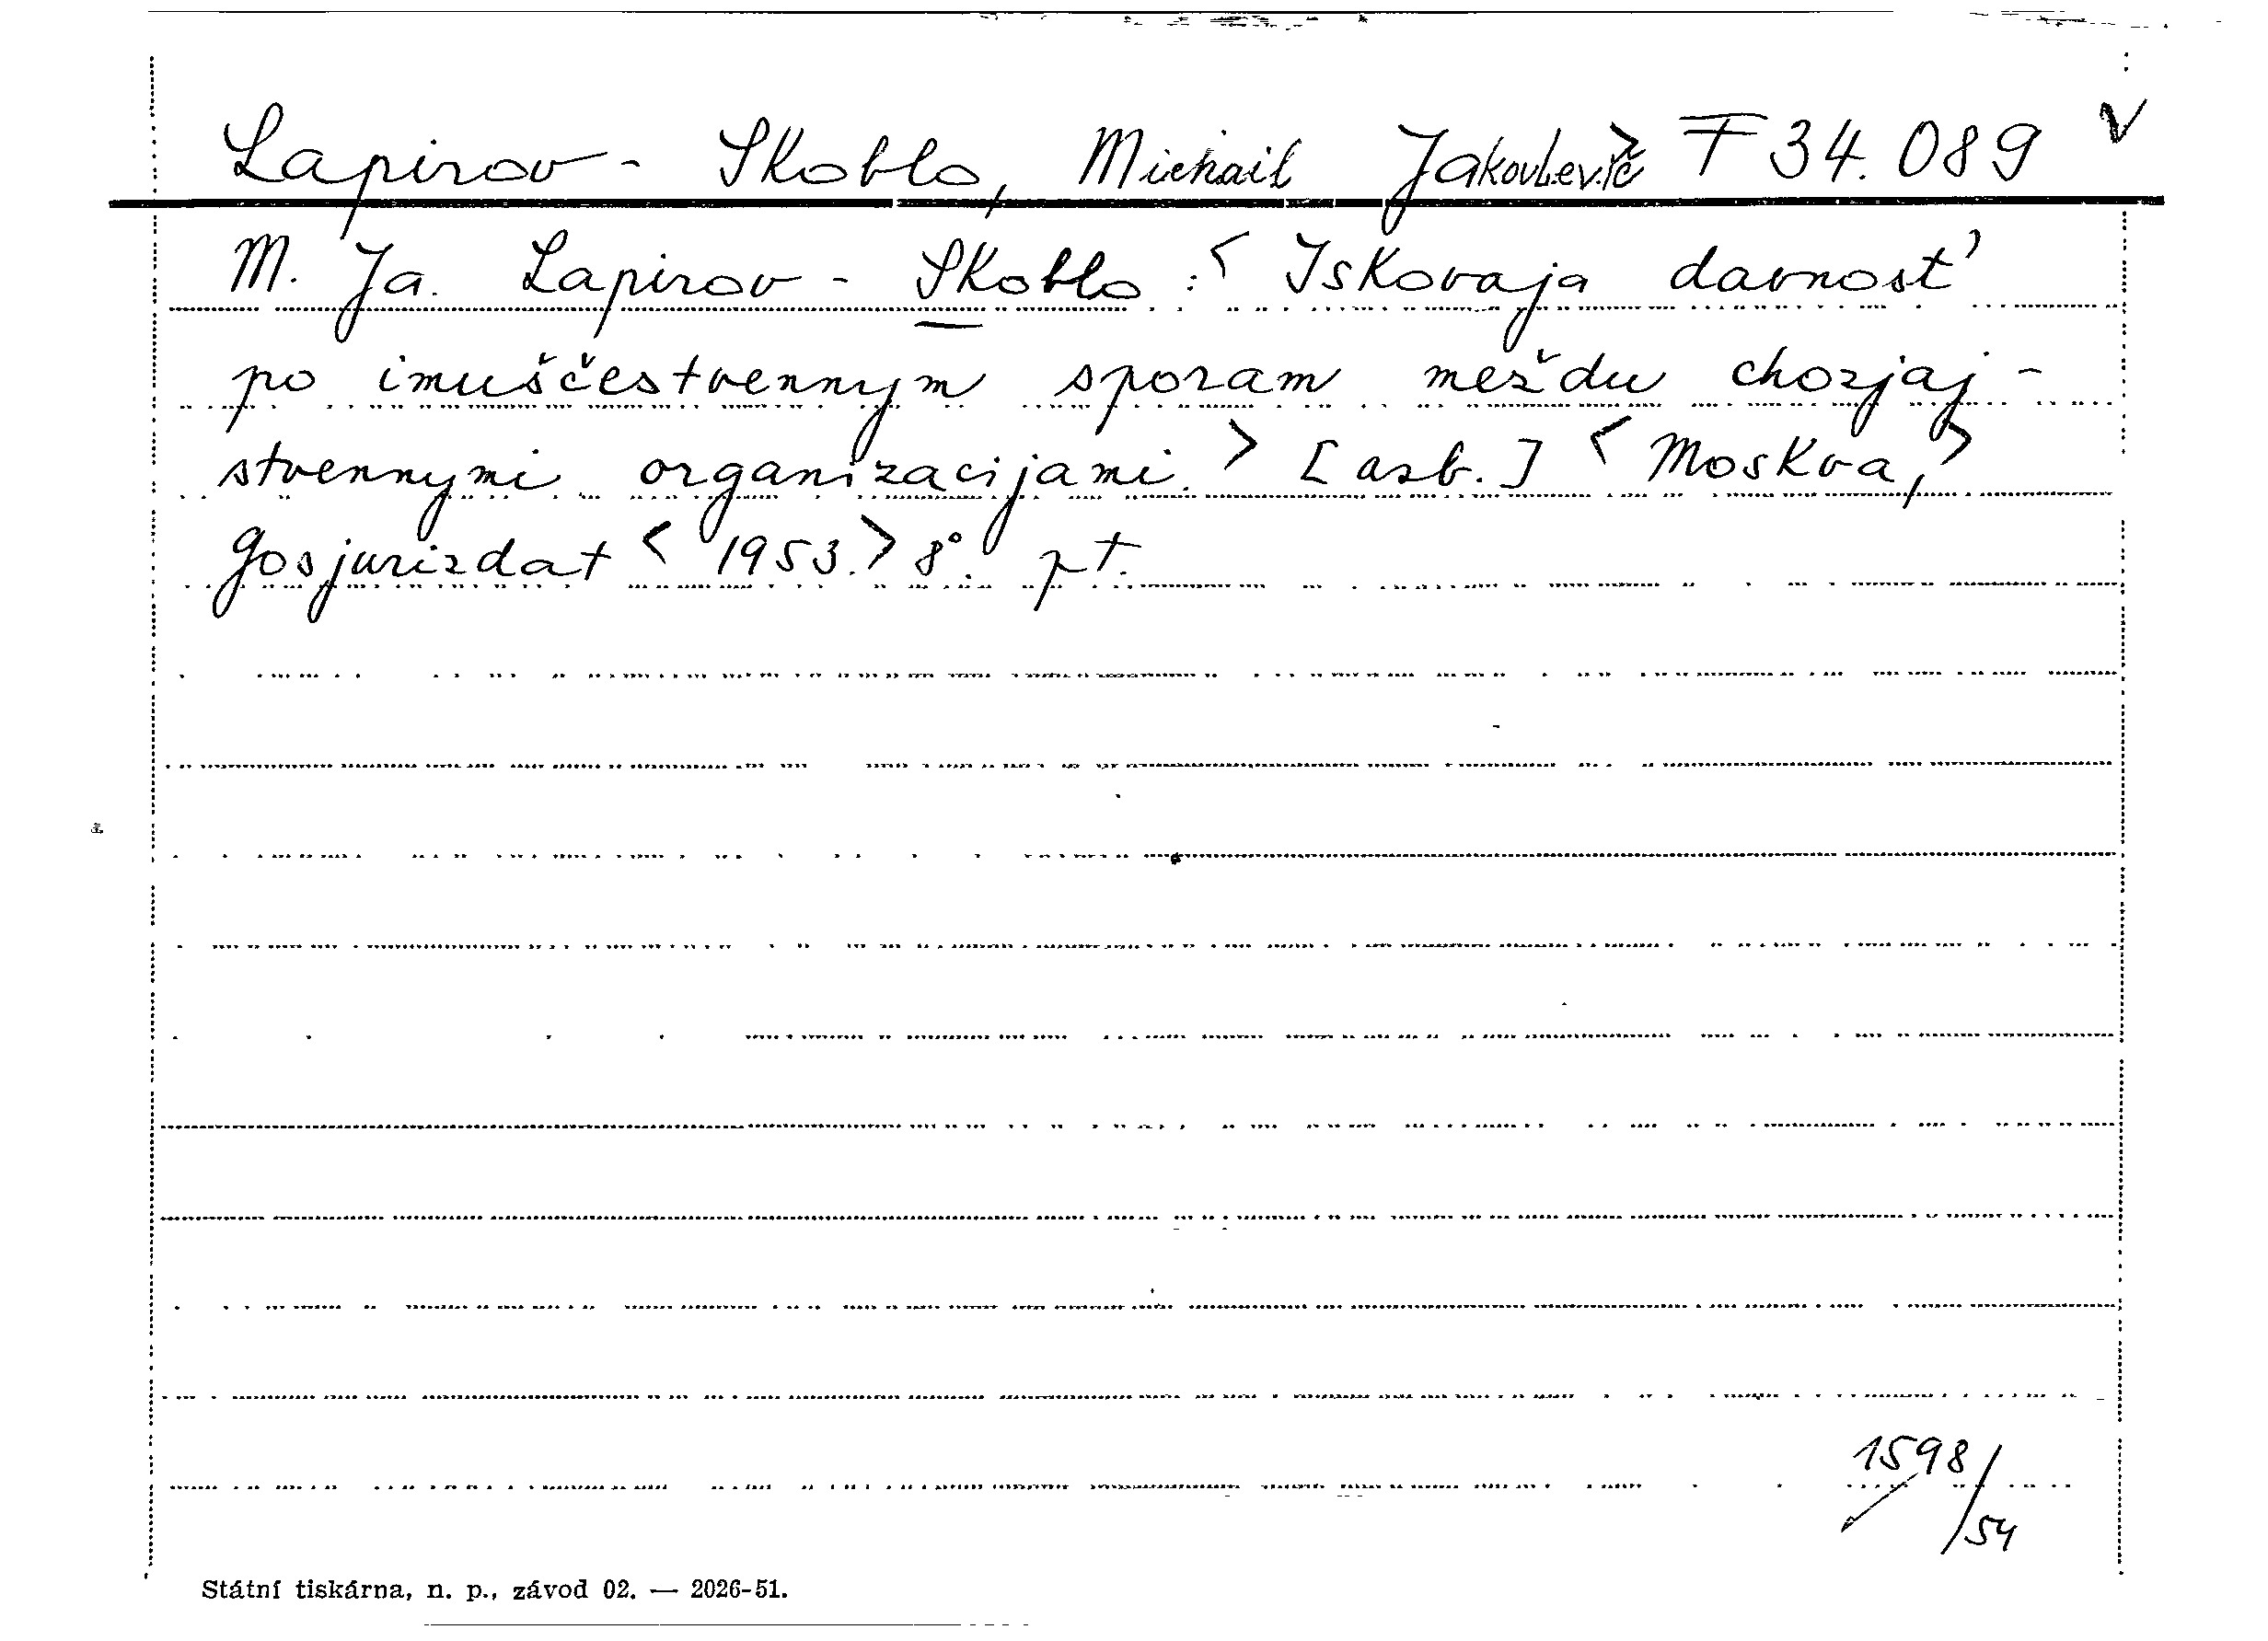 Lapirov - Skoblo, Michail Jakovlevič > F 34.089 V
M. Ja. Lapirov - Skoblo : < Iskovaja davnost'
po imuščestvennym sporam meždu chozjaj-
stvennymi organizacijami. > [azb.] < Moskva, >
Gosjurizdat < 1953. > 8°. pt.
1598/54
Státní tiskárna, n. p., závod 02. — 2026-51.